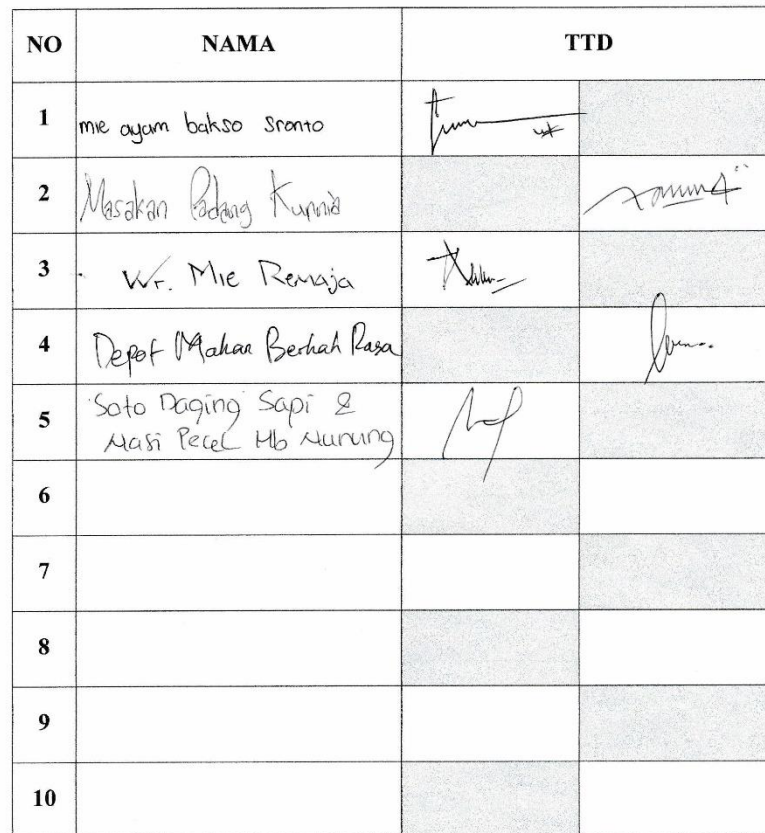 NO NAMA TTD
1 mie ayam bakso Sronto
2 Masakan Padang Kurnia
3 Wr. Mie Remaja
4 Depot Makan Berkah Rasa
5 Soto Daging Sapi &
Nasi Pecel Mb Nunung
6
7
8
9
10